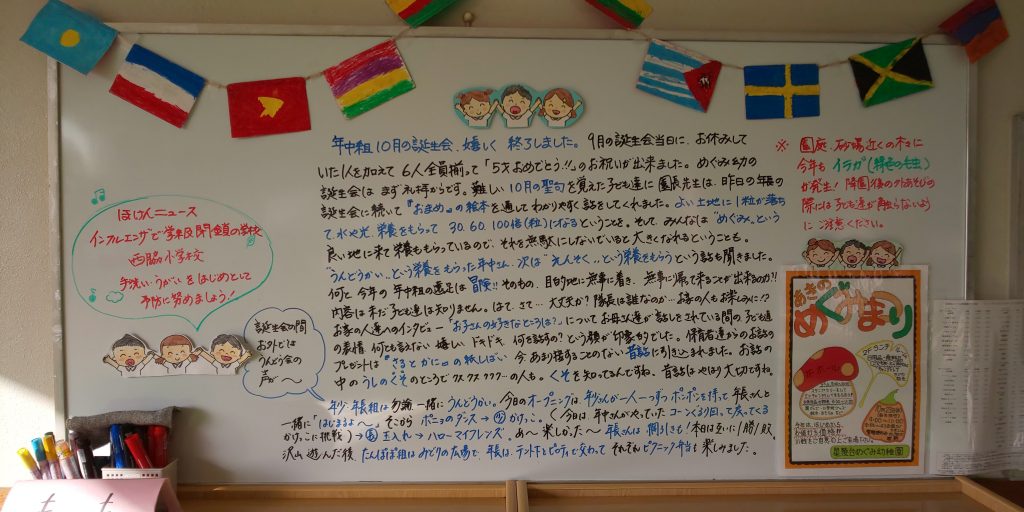 ほけんニュース
インフルエンザで学級閉鎖の学校
西脇小学校
手洗い、うがいをはじめとして
予防に努めましょう！
誕生会の間
お外では
うんどう会の
声が〜
年中組10月の誕生会、嬉しく終了しました。9月の誕生会当日に、お休みして
いた1人を加えて6人全員揃って「5才おめでとう!!」のお祝いが出来ました。めぐみ幼の
誕生会はまず礼拝からです。難しい10月の聖句を覚えた子ども達に園長先生は、昨日の年長の
誕生会に続いて『おまめ』の絵本を通してわかりやすく話をしてくれました。よい土地に1粒が落ち
て水や光、栄養をもらって30.60.100倍(粒)になるということを。そして、みんなは"めぐみ"という
良い地に来て栄養をもらっているので、それを無駄にしないでいると大きくなれるということも。
"うんどうかい"という栄養をもらった年中さん、次は"えんそく"という栄養をもらうという話も聞きました。
何と今年の年中組の遠足は冒険!!そのもの、目的地に無事に着き、無事に帰って来ることが出来るのか?!
内容は未だ子ども達は知りません。はて、さて…大丈夫か？隊長は誰なのか…お家の人もお楽しみに!?
お家の人達へのインタビュー「お子さんの好きなところは？」についてお母さん達が話しをされている間の子ども達
の表情、何とも言えない嬉しいドキドキ何を話すの？という顔が印象的でした。保育者達からのお話の
プレゼントは『さるとかに』の紙しばい 今、あまり接することのない昔話に引きこまれました。お話の
中のうしのくそのところでクスクスククク…の人も。くそを知ってるんですね、昔話はやはり大切ですね。
年少、年長組は勿論一緒にうんどうかい。今日のオープニングは、年少さんが一人一つずつポンポンを持って年長さんと
一緒に「はじまるよ〜」。そこからポニョのダンス→かけっこ。(今日は年中さんがやっていたコーンぐるり回って戻ってくる
かけっこに挑戦)→玉入れ→ハローマイフレンズ。あ〜楽しかった〜年長さんは綱引きも！本日は互いに1勝1敗。
沢山遊んだ後、たんぽぽ組はみどりの広場で、年長は、テントとピロティで交わって それぞれピクニック弁当も楽しみました。
※園庭、砂場近くの木々に
今年もイラガ(緑色の毛虫)
が発生！降園後の外あそびの
際には子ども達が触らないよう
にご注意ください。
あきの
めぐみまつり
星陵台めぐみ幼稚園